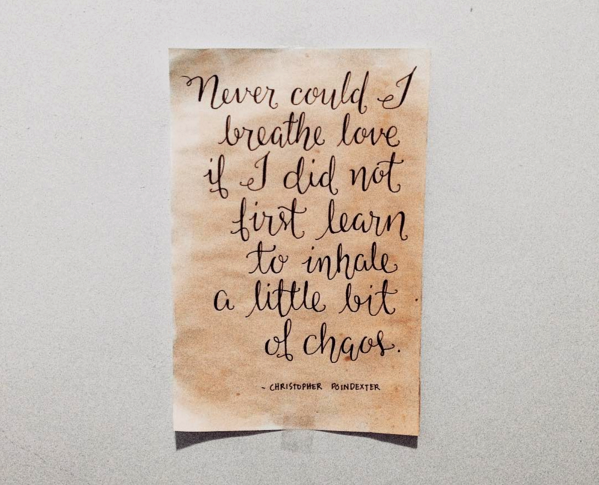 Never could I
breathe love
if I did not
first learn
to inhale
a little bit
of chaos.
- CHRISTOPHER POINDEXTER